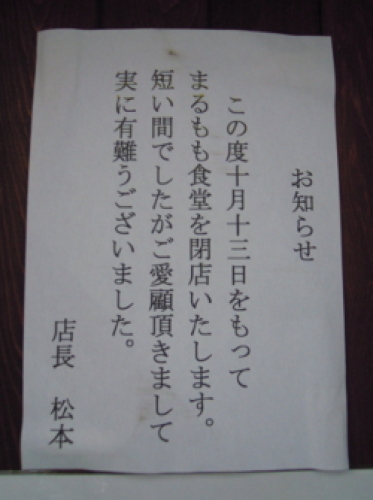 お知らせ
この度十月十三日をもって
まるもも食堂を閉店いたします。
短い間でしたがご愛顧頂きまして
実に有難うございました。
店長 松本